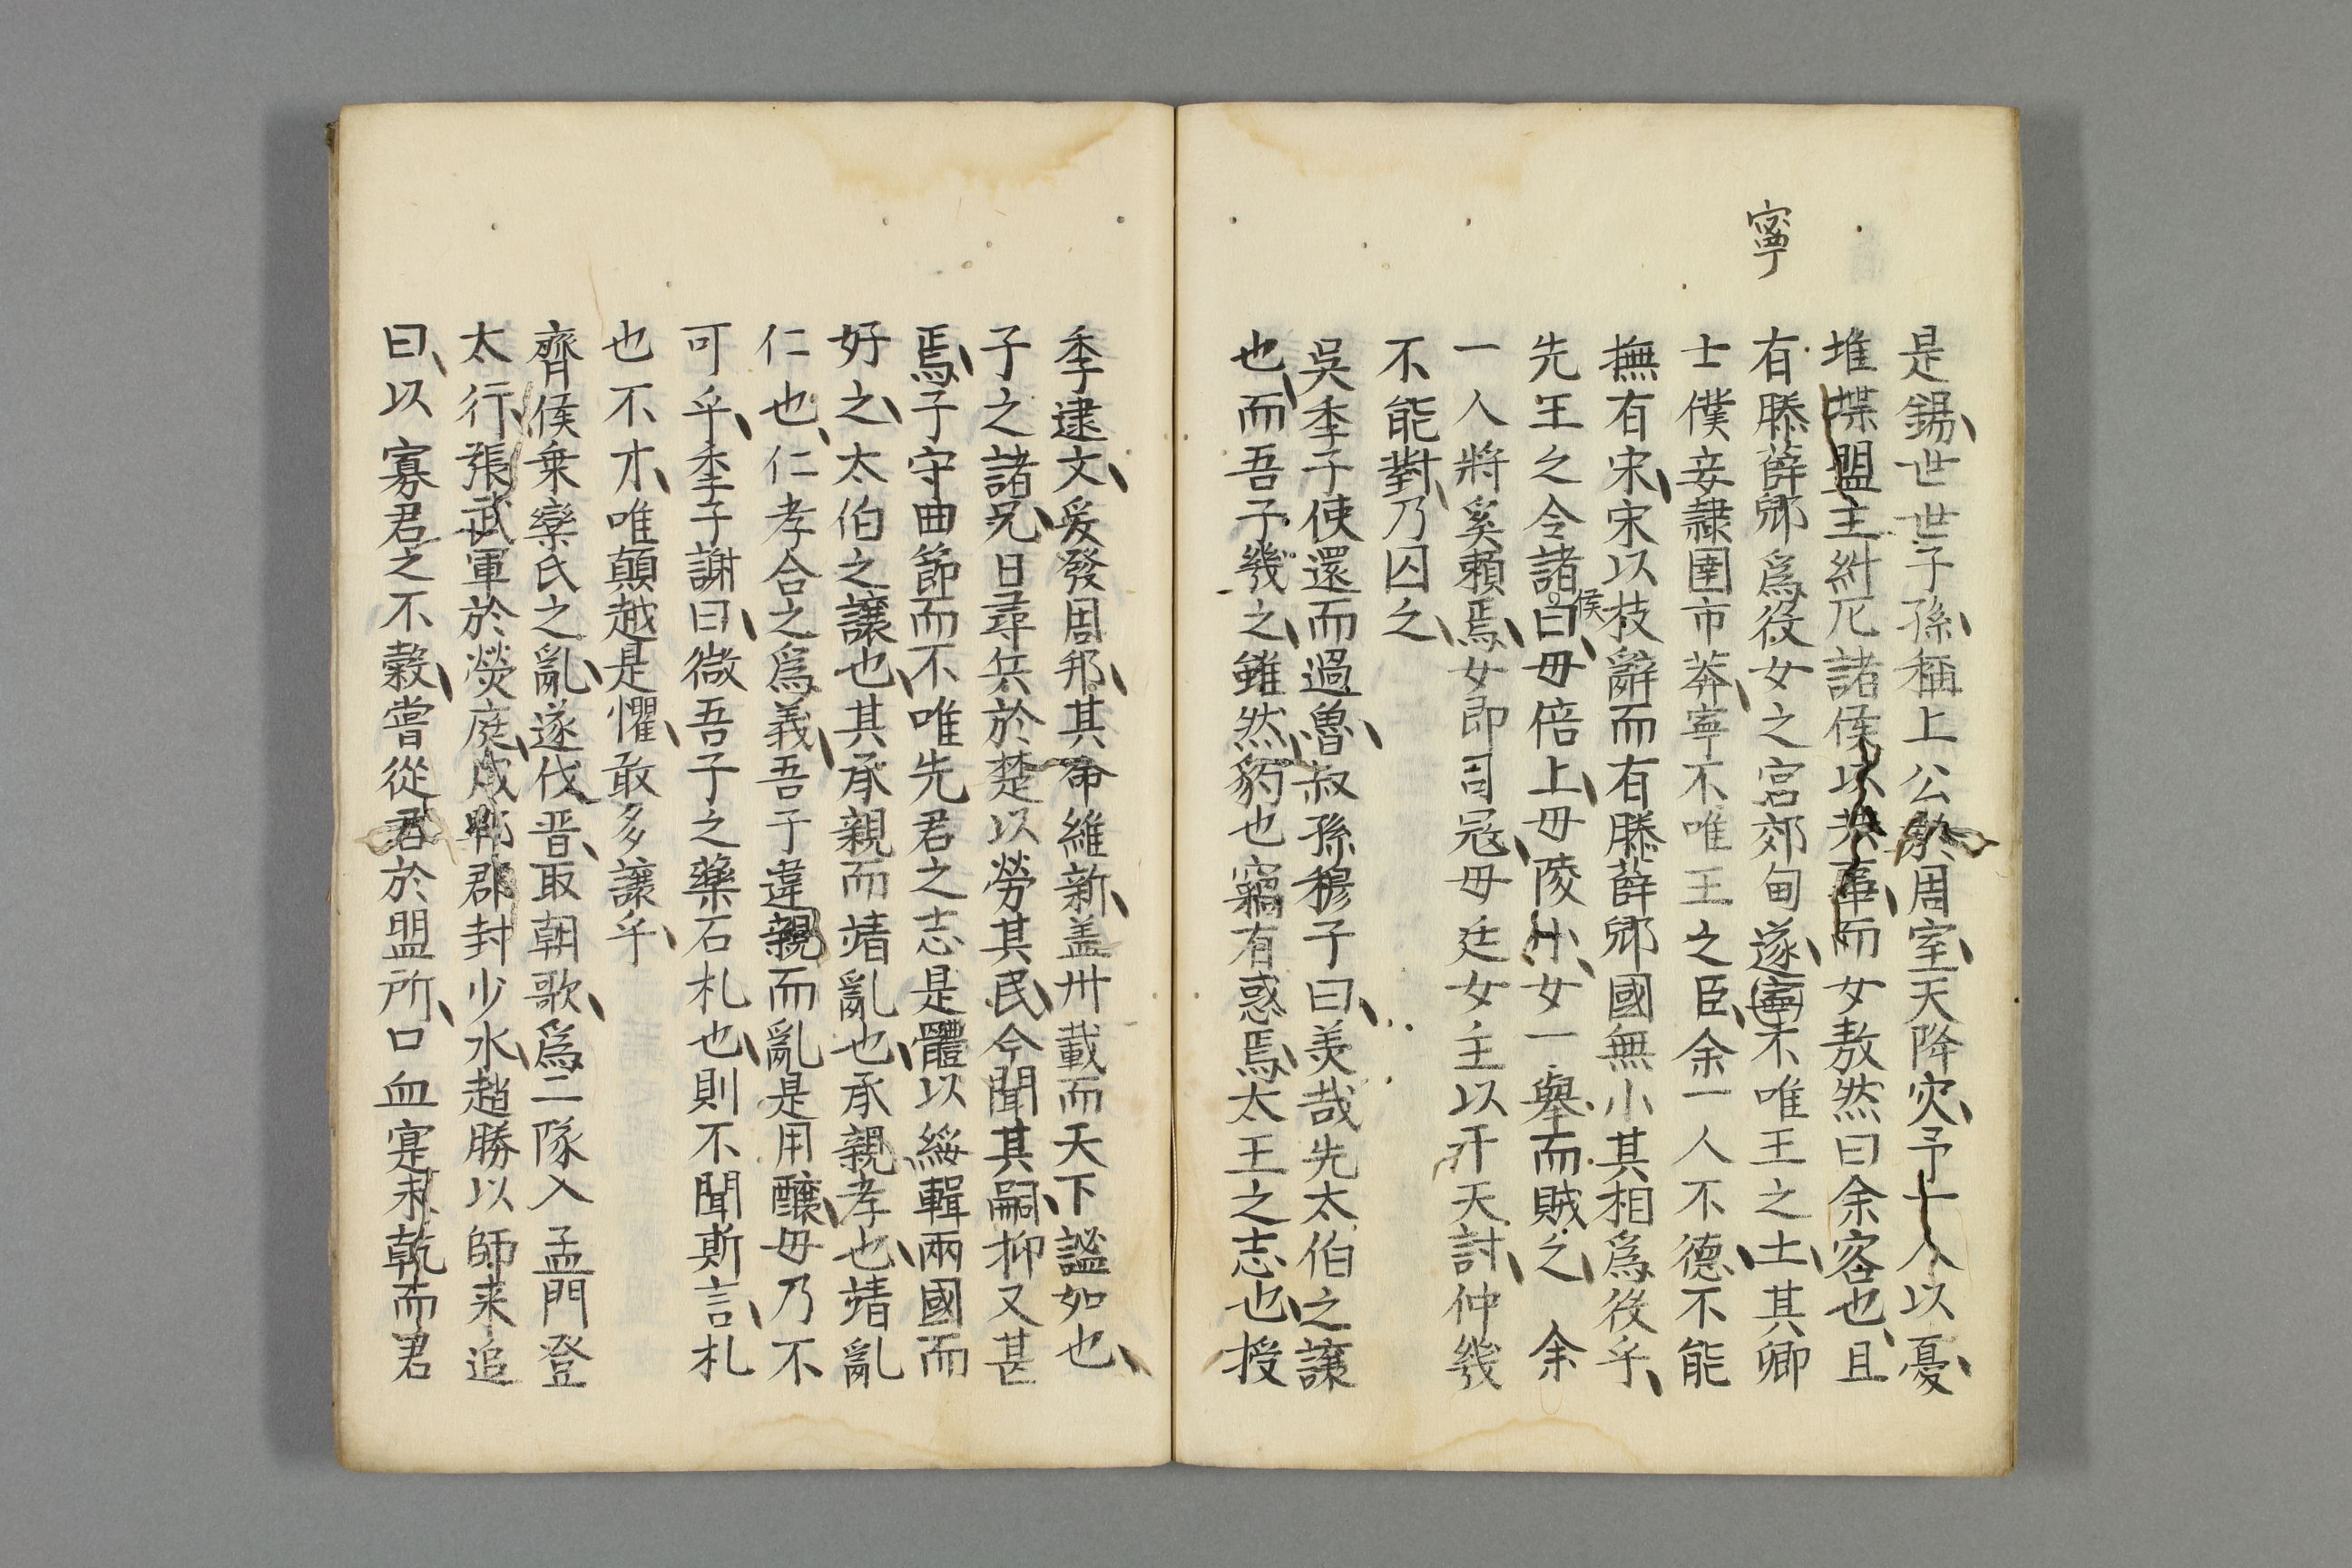 寧
是錫世世子孫稱上公於周室天降灾予一人以憂
堆堞盟主糾厄諸侯以共事而女敖然曰余客也且
有滕薛郷爲役女之宮郊甸遂寧不唯王之士其卿
士僕妾隸圉市莽寧不唯王之臣余一人不德不能
撫有宋宋以枝辭而有滕薛郷國無小其相爲役乎
先王之令諸侯曰毋倍上毋陵小女一舉而賊之余
一人將奚賴焉女即司冦毋廷女主以干天討仲幾
不能對乃囚之
吳季子使還而過魯叔孫穆子曰羙哉先太伯之讓
也而吾子幾之雖然豹也竊有惑焉太王之志也授
季逮文爰發周邦其命維新盖卅載而天下謐如也
子之諸兄日尋兵於楚以勞其民今聞其嗣抑又甚
焉子守曲節而不唯先君之志是體以綏輯兩國而
好之太伯之讓也其承親而靖亂也承親孝也靖亂
仁也仁孝合之爲義吾子違親而亂是用釀毋乃不
可乎季子謝曰微吾子之藥石札也則不聞斯言札
也不才唯顛越是懼敢多讓乎
齊侯乗欒氏之亂遂伐晋取朝歌爲二隊入孟門登
太行張武軍於熒庭戍郫郡封少水趙勝以師来追
曰以寡君之不穀嘗從君於盟所口血寔未乾而君